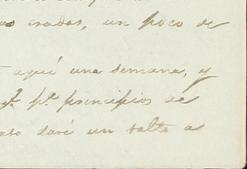 osadas, un poco de
aquí una semana, y
p.ª principios de
daré un salto a